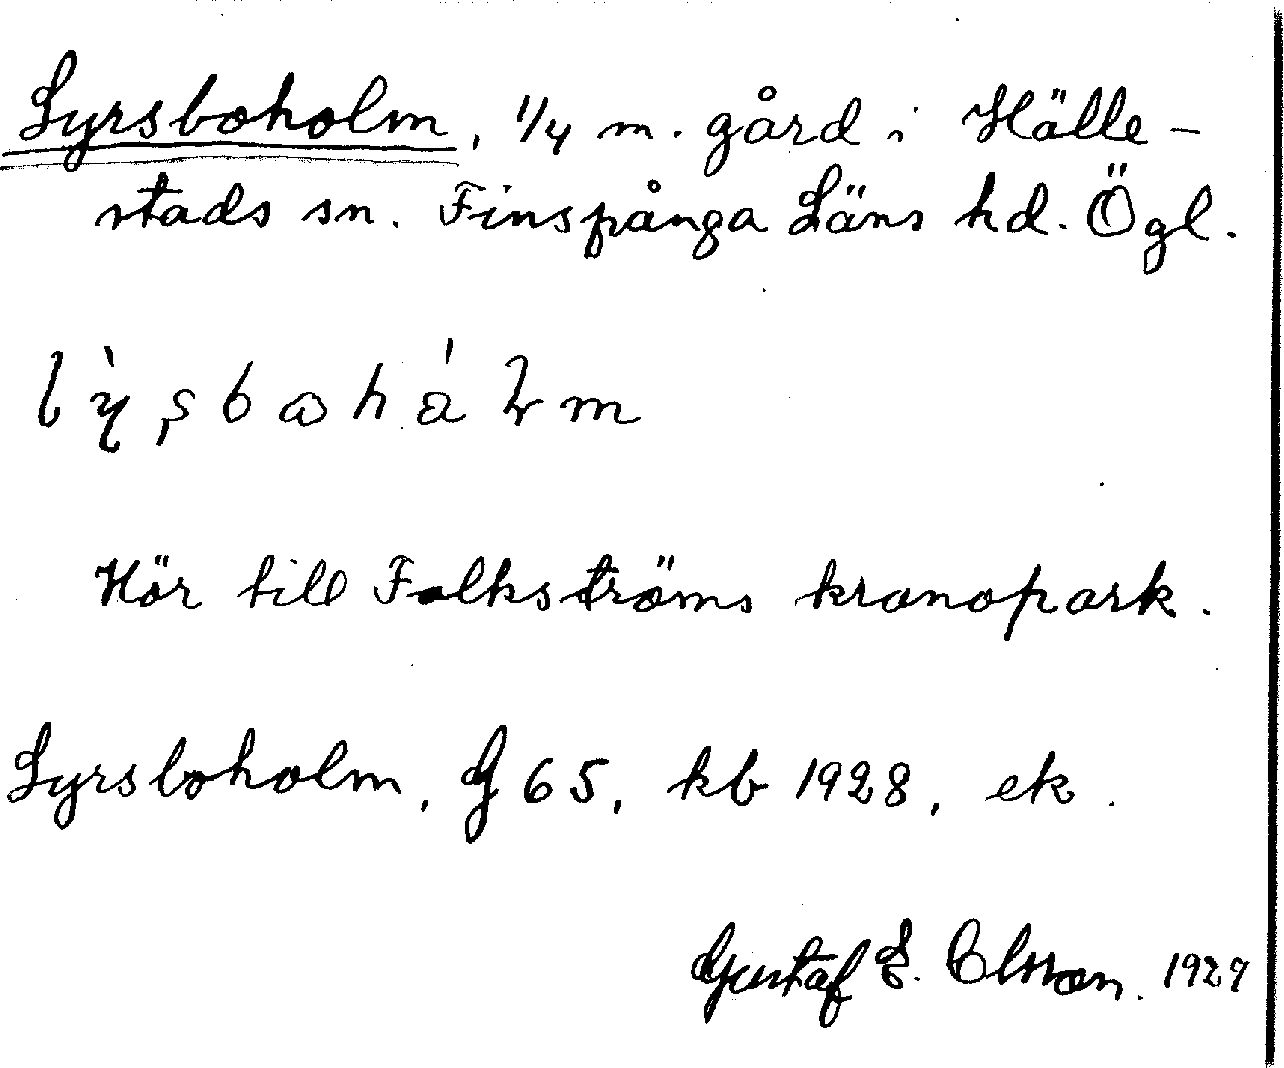 Lyrsboholm, 1/4 m. gård i Hälle-
stads sn. Finspånga Läns hd. Ögl.
Hör till Folkströms kronopark.
Lyrsboholm, G 65, kb 1928, ek.
Gustaf E. Olsson. 1929